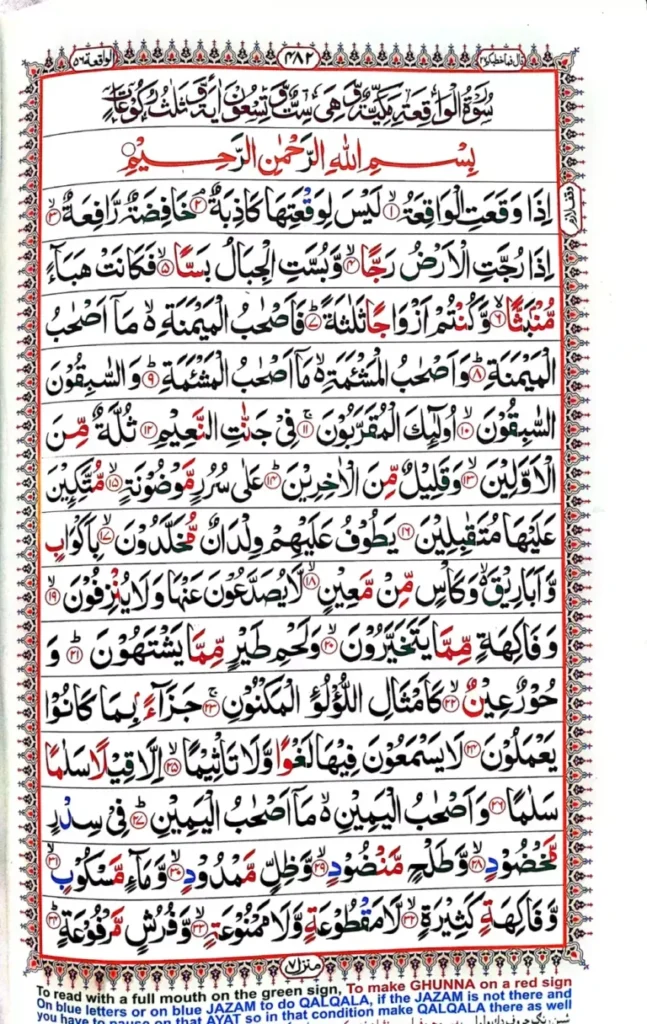 قال فما خطبكم ٢٧
٤٨٢
الواقعة ٥٦
سُوْرَةُ الْوَاقِعَةِ مَكِّيَّةٌ وَّهِيَ سِتٌّ وَّتِسْعُوْنَ اٰيَةً وَّثَلٰثُ رُكُوْعَاتٍ
بِسْمِ اللهِ الرَّحْمٰنِ الرَّحِيْمِ
اِذَا وَقَعَتِ الْوَاقِعَةُ ۙ﴿١﴾ لَيْسَ لِوَقْعَتِهَا كَاذِبَةٌ ۘ﴿٢﴾ خَافِضَةٌ رَّافِعَةٌ ۙ﴿٣﴾
اِذَا رُجَّتِ الْاَرْضُ رَجًّا ۙ﴿٤﴾ وَّبُسَّتِ الْجِبَالُ بَسًّا ۙ﴿٥﴾ فَكَانَتْ هَبَآءً
مُّنْۢبَثًّا ۙ﴿٦﴾ وَّكُنْتُمْ اَزْوَاجًا ثَلٰثَةً ؕ﴿٧﴾ فَاَصْحٰبُ الْمَيْمَنَةِ ۙ۬ مَاۤ اَصْحٰبُ
الْمَيْمَنَةِ ؕ﴿٨﴾ وَاَصْحٰبُ الْمَشْـَٔمَةِ ۙ۬ مَاۤ اَصْحٰبُ الْمَشْـَٔمَةِ ؕ﴿٩﴾ وَالسّٰبِقُوْنَ
السّٰبِقُوْنَ ۙ﴿١٠﴾ اُولٰٓئِكَ الْمُقَرَّبُوْنَ ۚ﴿١١﴾ فِيْ جَنّٰتِ النَّعِيْمِ ﴿١٢﴾ ثُلَّةٌ مِّنَ
الْاَوَّلِيْنَ ۙ﴿١٣﴾ وَقَلِيْلٌ مِّنَ الْاٰخِرِيْنَ ؕ﴿١٤﴾ عَلٰى سُرُرٍ مَّوْضُوْنَةٍ ۙ﴿١٥﴾ مُّتَّكِـِٕيْنَ
عَلَيْهَا مُتَقٰبِلِيْنَ ﴿١٦﴾ يَطُوْفُ عَلَيْهِمْ وِلْدَانٌ مُّخَلَّدُوْنَ ۙ﴿١٧﴾ بِاَكْوَابٍ
وَّاَبَارِيْقَ ۙ۬ وَكَاْسٍ مِّنْ مَّعِيْنٍ ۙ﴿١٨﴾ لَّا يُصَدَّعُوْنَ عَنْهَا وَلَا يُنْزِفُوْنَ ۙ﴿١٩﴾
وَفَاكِهَةٍ مِّمَّا يَتَخَيَّرُوْنَ ۙ﴿٢٠﴾ وَلَحْمِ طَيْرٍ مِّمَّا يَشْتَهُوْنَ ؕ﴿٢١﴾ وَ
حُوْرٌ عِيْنٌ ۙ﴿٢٢﴾ كَاَمْثَالِ اللُّؤْلُؤِ الْمَكْنُوْنِ ۚ﴿٢٣﴾ جَزَآءًۢ بِمَا كَانُوْا
يَعْمَلُوْنَ ﴿٢٤﴾ لَا يَسْمَعُوْنَ فِيْهَا لَغْوًا وَّلَا تَاْثِيْمًا ۙ﴿٢٥﴾ اِلَّا قِيْلًا سَلٰمًا
سَلٰمًا ﴿٢٦﴾ وَاَصْحٰبُ الْيَمِيْنِ ۙ۬ مَاۤ اَصْحٰبُ الْيَمِيْنِ ؕ﴿٢٧﴾ فِيْ سِدْرٍ
مَّخْضُوْدٍ ۙ﴿٢٨﴾ وَّطَلْحٍ مَّنْضُوْدٍ ۙ﴿٢٩﴾ وَّظِلٍّ مَّمْدُوْدٍ ۙ﴿٣٠﴾ وَّمَآءٍ مَّسْكُوْبٍ ۙ﴿٣١﴾
وَّفَاكِهَةٍ كَثِيْرَةٍ ۙ﴿٣٢﴾ لَّا مَقْطُوْعَةٍ وَّلَا مَمْنُوْعَةٍ ۙ﴿٣٣﴾ وَّفُرُشٍ مَّرْفُوْعَةٍ ؕ﴿٣٤﴾
منزل ٧
To read with a full mouth on the green sign, To make GHUNNA on a red sign
On blue letters or on blue JAZAM to do QALQALA, if the JAZAM is not there and
you have to pause on that AYAT so in that condition make QALQALA there as well